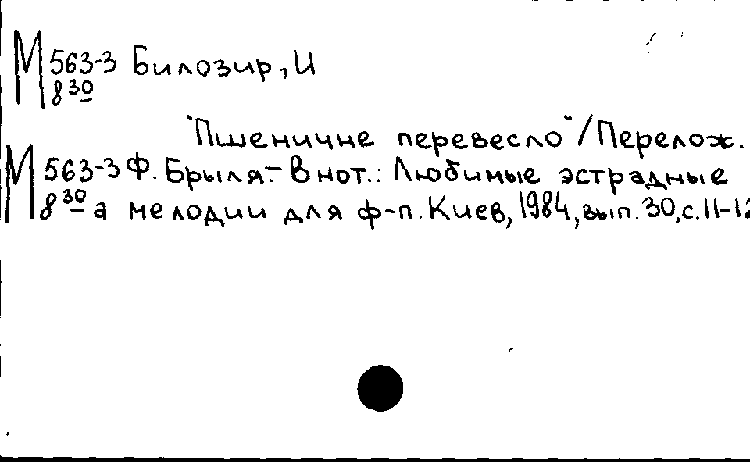 М 563-3 Билозир, И
8 30
"Пшеничне перевесло"/Перелож.
М 563-3 Ф. Брыля.- В нот.: Любимые эстрадные
8 30 а мелодии для ф-п. Киев, 1984, вып. 30, с. 11-12